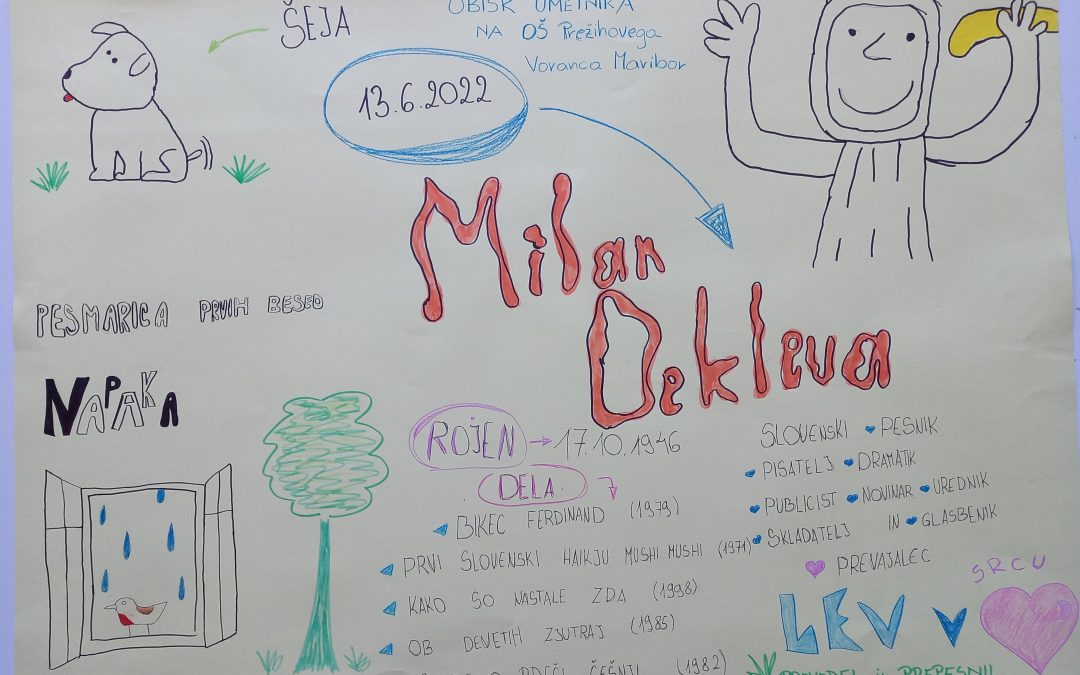 ŠEJA
OBISK UMETNIKA
NA OŠ Prežihovega
Voranca Maribor
13.6.2022
Milan
Dekleva
PESMARICA PRVIH BESED
NAPAKA
ROJEN → 17.10.1946
DELA:
BIKEC FERDINAND (1979)
PRVI SLOVENSKI HAIKJU MUSHI MUSHI (1971)
KAKO SO NASTALE ZDA (1998)
OB DEVETIH ZJUTRAJ (1985)
ČEŠNJI (1982)
SLOVENSKI PESNIK
PISATELJ DRAMATIK
PUBLICIST NOVINAR UREDNIK
SKLADATELJ IN GLASBENIK
PREVAJALEC
LEV V SRCU